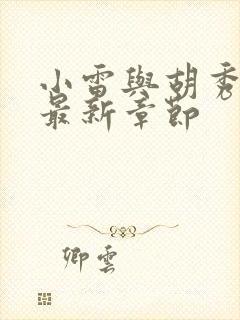 小雷與胡秀
最新章節
卿雲